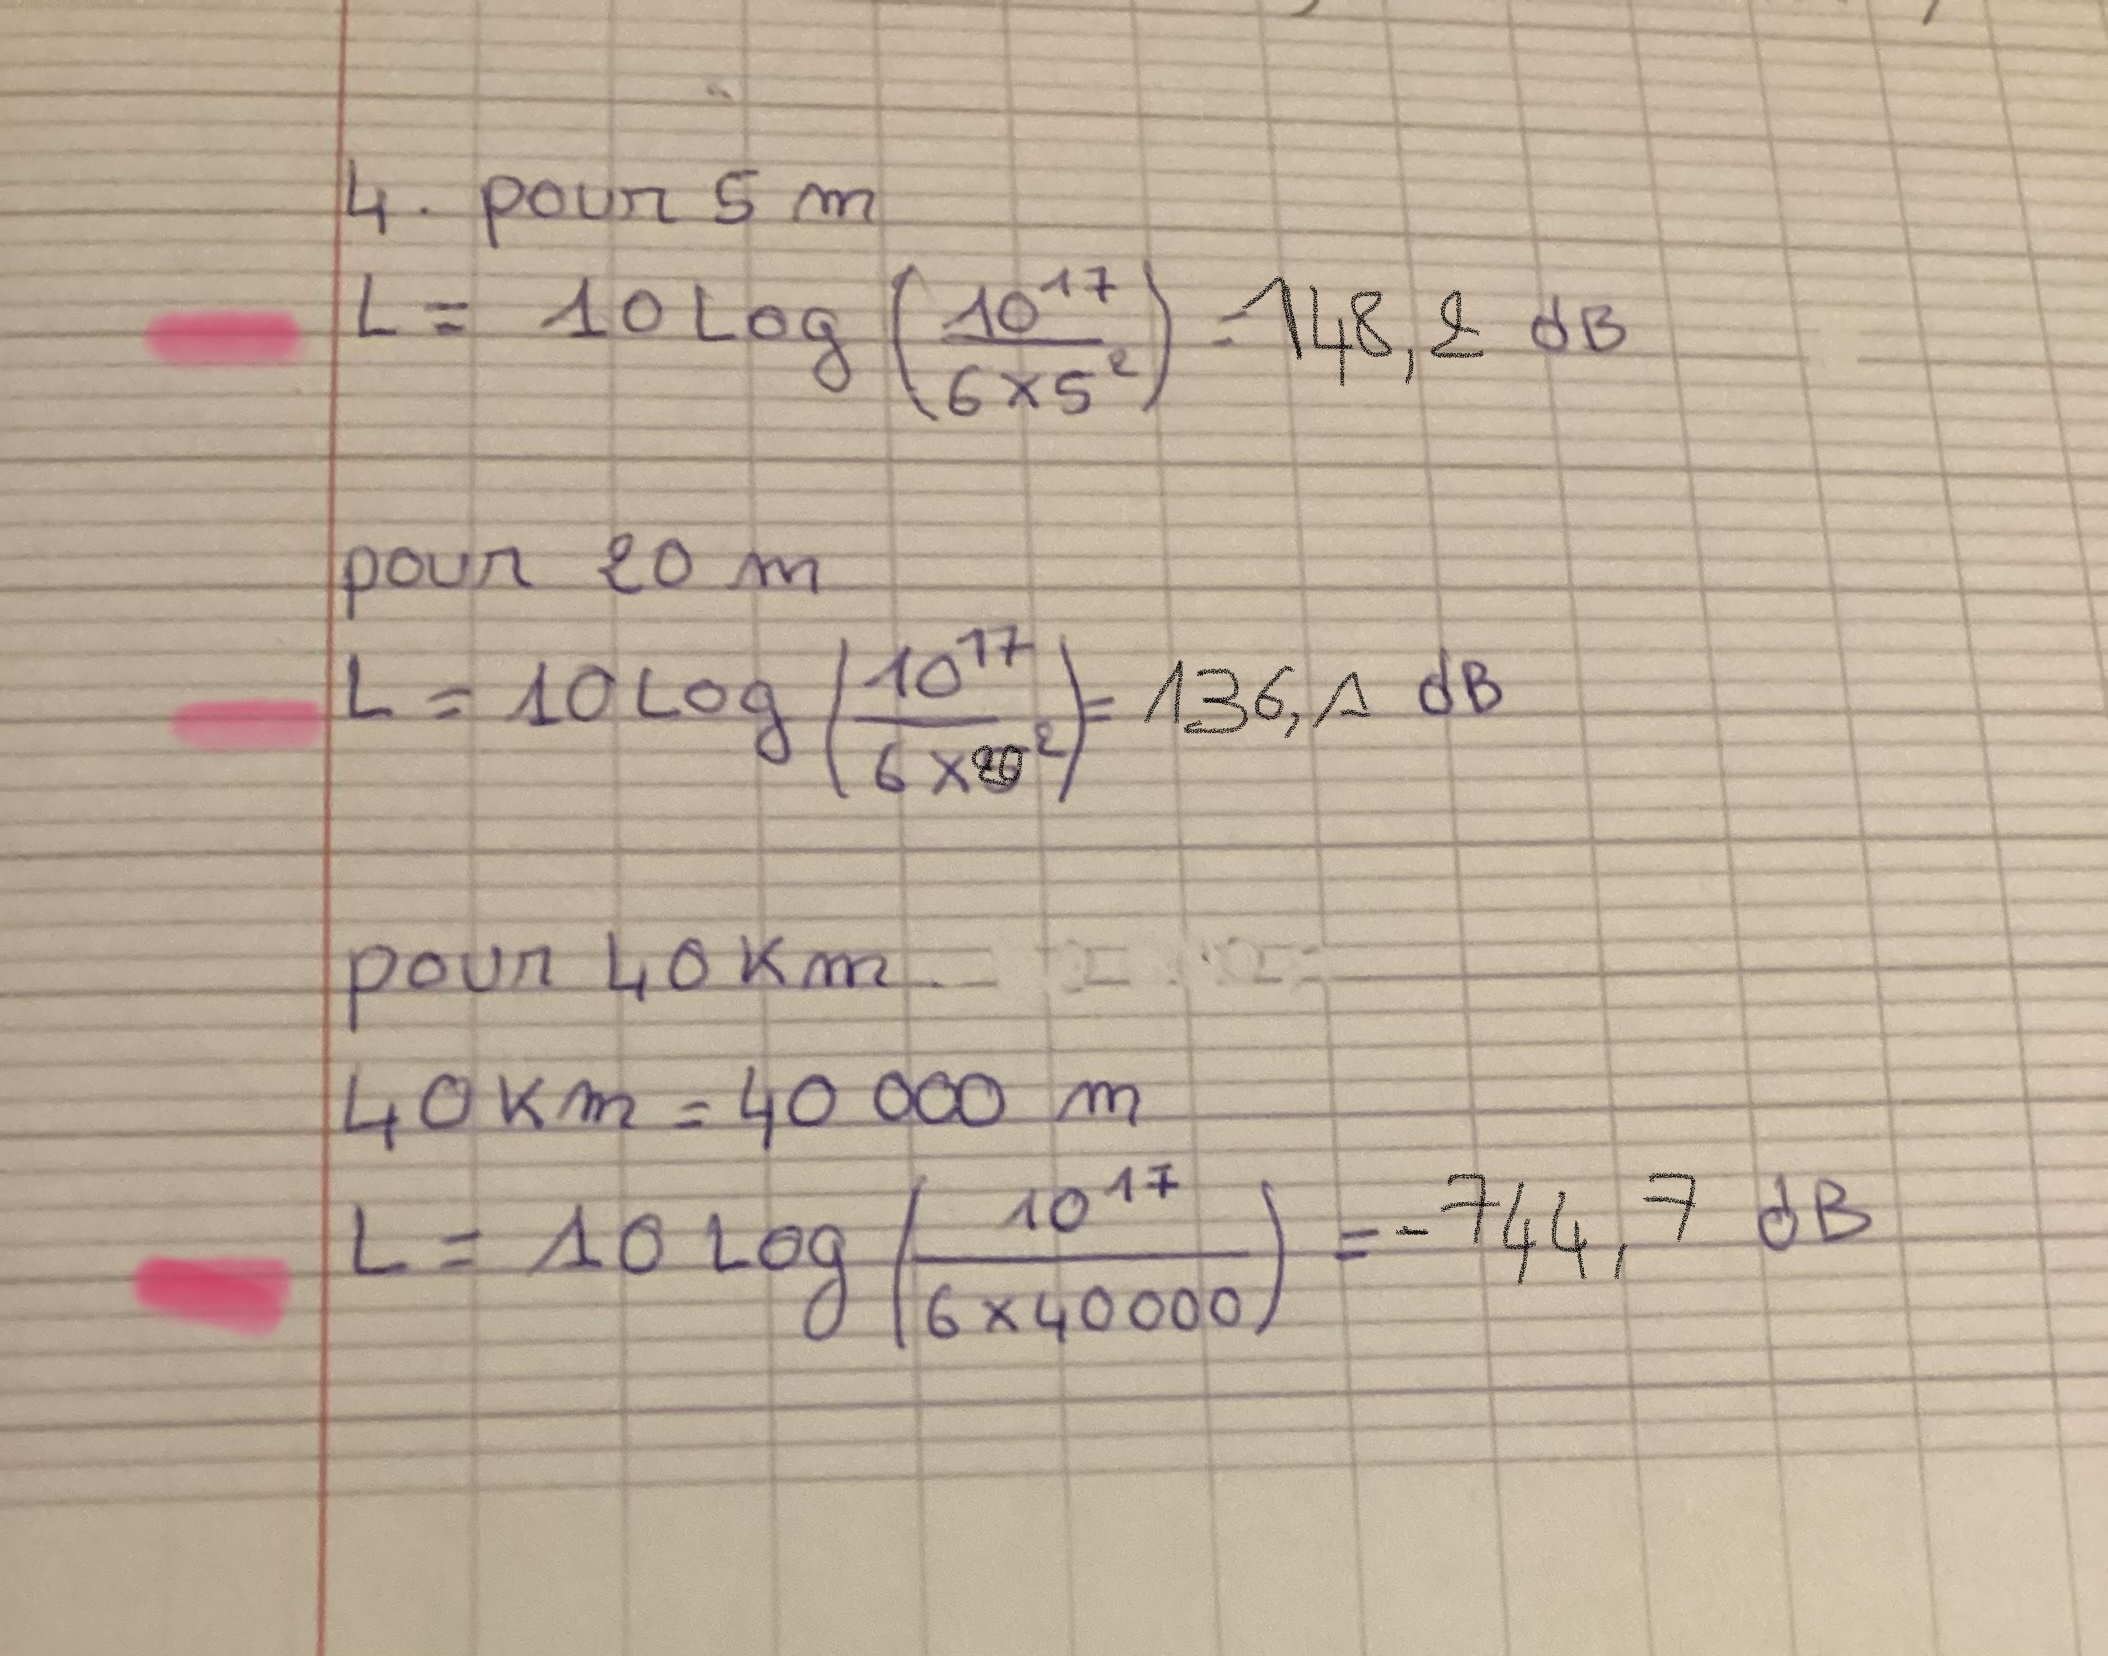 4. pour 5 m
L = 10 Log (10^17 / 6 x 5²) = 148,2 dB
pour 20 m
L = 10 Log (10^17 / 6 x 20²) = 136,1 dB
pour 40 Km
40 Km = 40 000 m
L = 10 Log (10^17 / 6 x 40000) = -744,7 dB